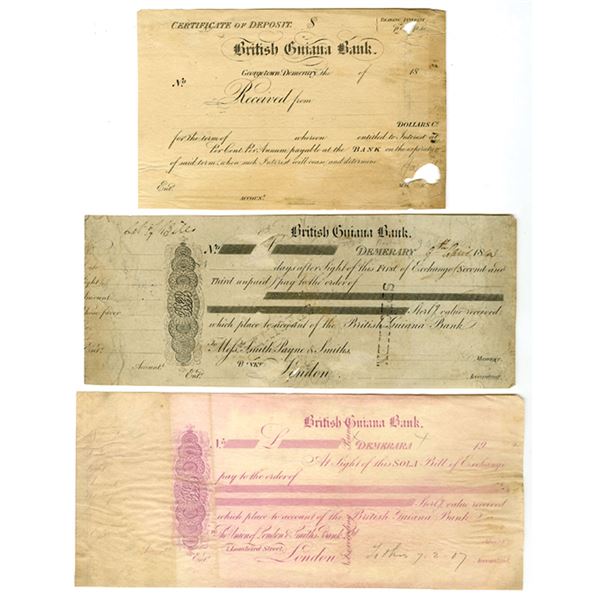 CERTIFICATE OF DEPOSIT. $
British Guiana Bank.
Georgetown Demerary, the of 18
No.
Received from
DOLLARS Cs.
for the term of whereon entitled to Interest at
Per Cent Per Annum payable at the BANK on the expiration
of said term, when such Interest will cease and determine
Entd.
ACCOUNt.
British Guiana Bank.
No. £ DEMERARY 9th April 18
days after Sight of this First of Exchange (Second and
Third unpaid) pay to the order of
Sterlg. value received
which place to account of the British Guiana Bank
To Messrs. Smith Payne & Smiths
BANKrs.
London.
Manager.
Accountant.
Amount
Entd.
British Guiana Bank.
No. £ DEMERARA 19
At Sight of this SOLA Bill of Exchange
pay to the order of
Sterlg. value received
which place to account of the British Guiana Bank
To The Union of London & Smiths Bank Ltd
2 Lombard Street,
London
7.2.07
Accountant.
Entd.